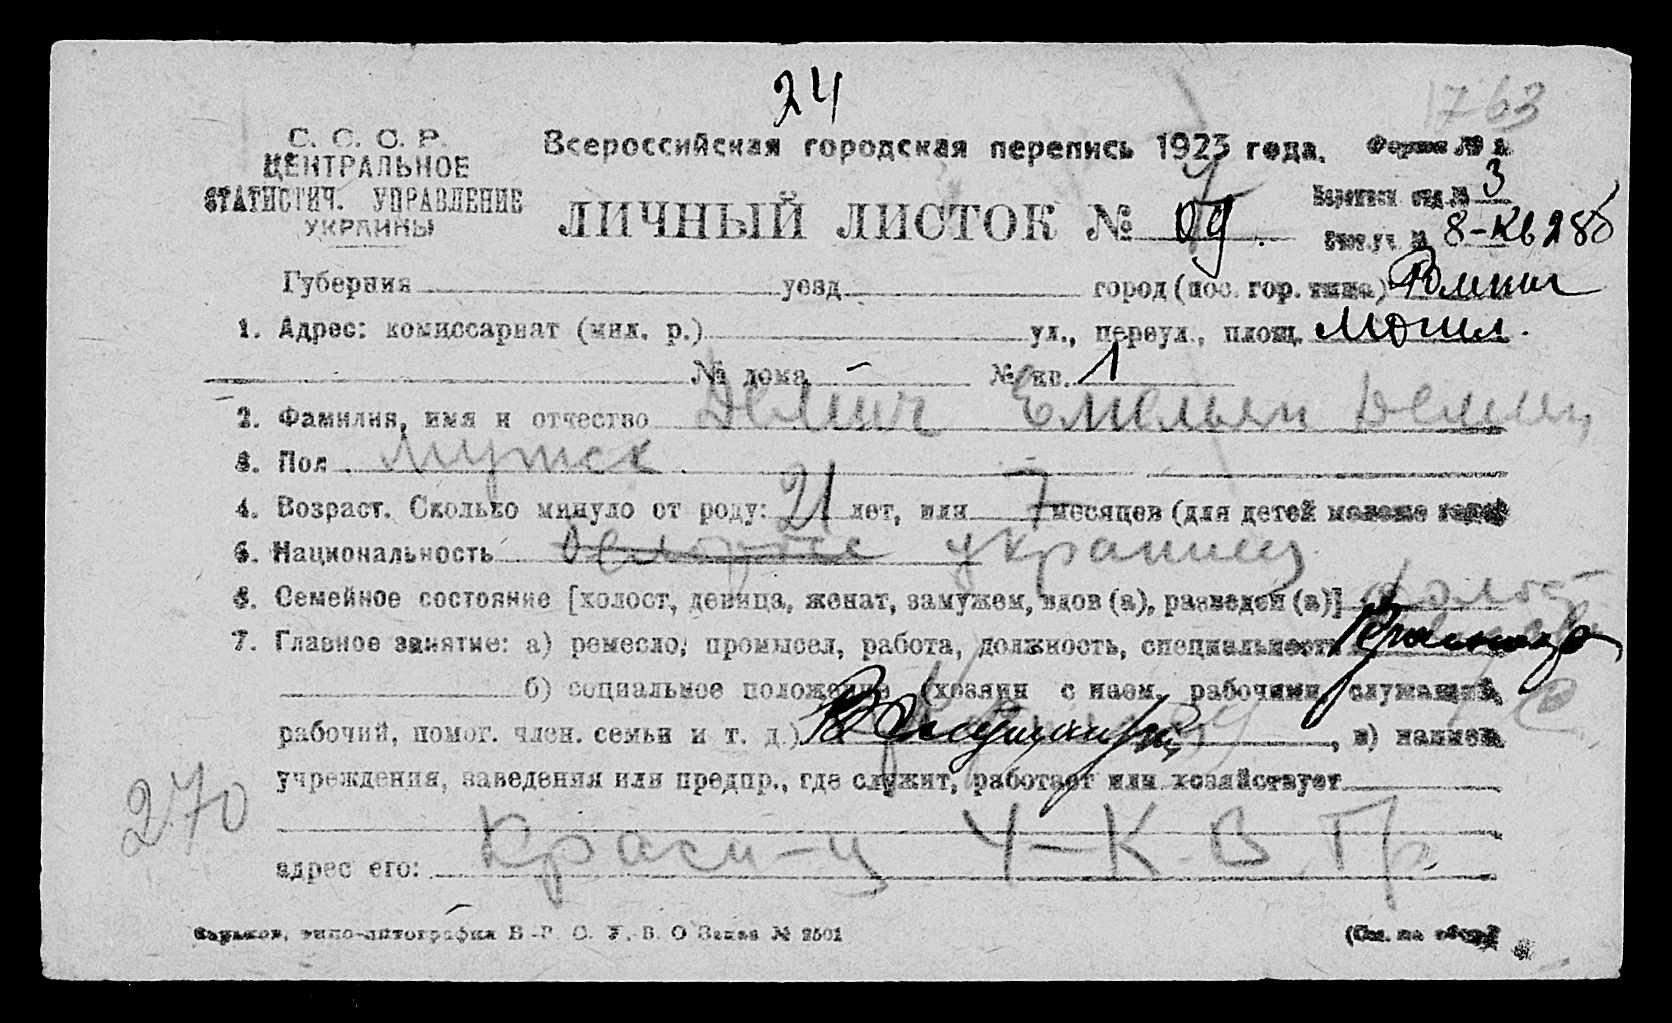 24
1763
С. С. С. Р.
ЦЕНТРАЛЬНОЕ
СТАТИСТИЧ. УПРАВЛЕНИЕ
УКРАИНЫ
Всероссийская городская перепись 1923 года.
Форма № 3
ЛИЧНЫЙ ЛИСТОК № 09
8-Кв 28б
Губерния уезд город (пос. гор. типа) Ромны
1. Адрес: комиссариат (мил. р.) ул., переул., площ. Могил.
№ дома – № кв. 1
2. Фамилия, имя и отчество Демич Емельян Демьян
3. Пол . Мужск.
4. Возраст. Сколько минуло от роду: 21 лет, или 7 месяцев (для детей моложе года)
5. Национальность украинец
6. Семейное состояние [холост, девица, женат, замужем, вдов (а), разведен (а)] холост
7. Главное занятие: а) ремесло, промысел, работа, должность, специальность
б) социальное положение (хозяин с наем. рабочими, служащий,
рабочий, помог. член. семьи и т. д.) В служащий, в) наимен.
учреждения, заведения или предпр., где служит, работает или хозяйствует
270
адрес его: Красн-ц Ч-К. В. Тр.
Харьков, типо-литография В. У. В. О Заказ № 2501
(См. на обор.)